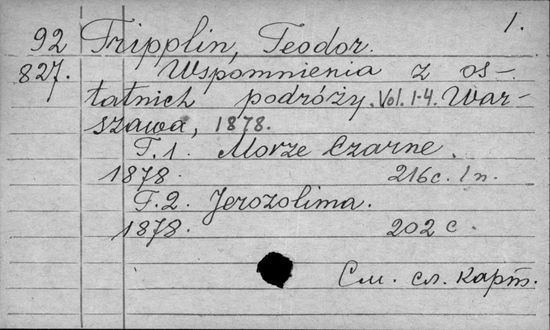 1.
92 Fripplin, Teodor.
827. Wspomnienia z os-
tatnich podróży. Vol. 1-4. War-
szawa, 1878.
T. 1. Morze Czarne.
1878. 216 с. 1 n.
T. 2. Jerozolima.
1878. 202 с.
См. сл. карт.